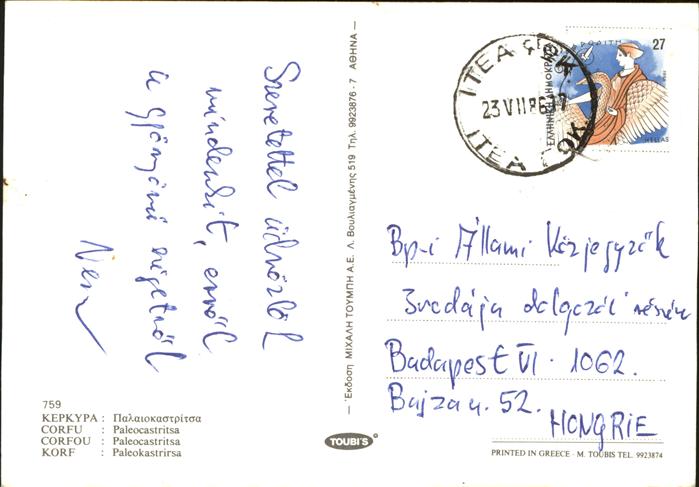 Szeretettel üdvözlöl
mindenkit, erről
a gyönyörű szigetről
759
ΚΕΡΚΥΡΑ : Παλαιοκαστρίτσα
CORFU : Paleocastritsa
CORFOU : Paleocastritsa
KORF : Paleokastrirsa
— Έκδοση ΜΙΧΑΛΗ ΤΟΥΜΠΗ Α.Ε. Λ. Βουλιαγμένης 519 Τηλ. 9923876 - 7 ΑΘΗΝΑ —
TOUBI'S
ΑΦΡΟΔΙΤΗ
27
ΕΛΛΗΝΙΚΗ ΔΗΜΟΚΡΑΤΙΑ
HELLAS
ITEA
23 VII 86
ITEA
Bp-i Állami Közjegyzők
Irodája dolgozói részére
Budapest VI. 1062.
Bajza u. 52.
HONGRIE
PRINTED IN GREECE - M. TOUBIS TEL. 9923874